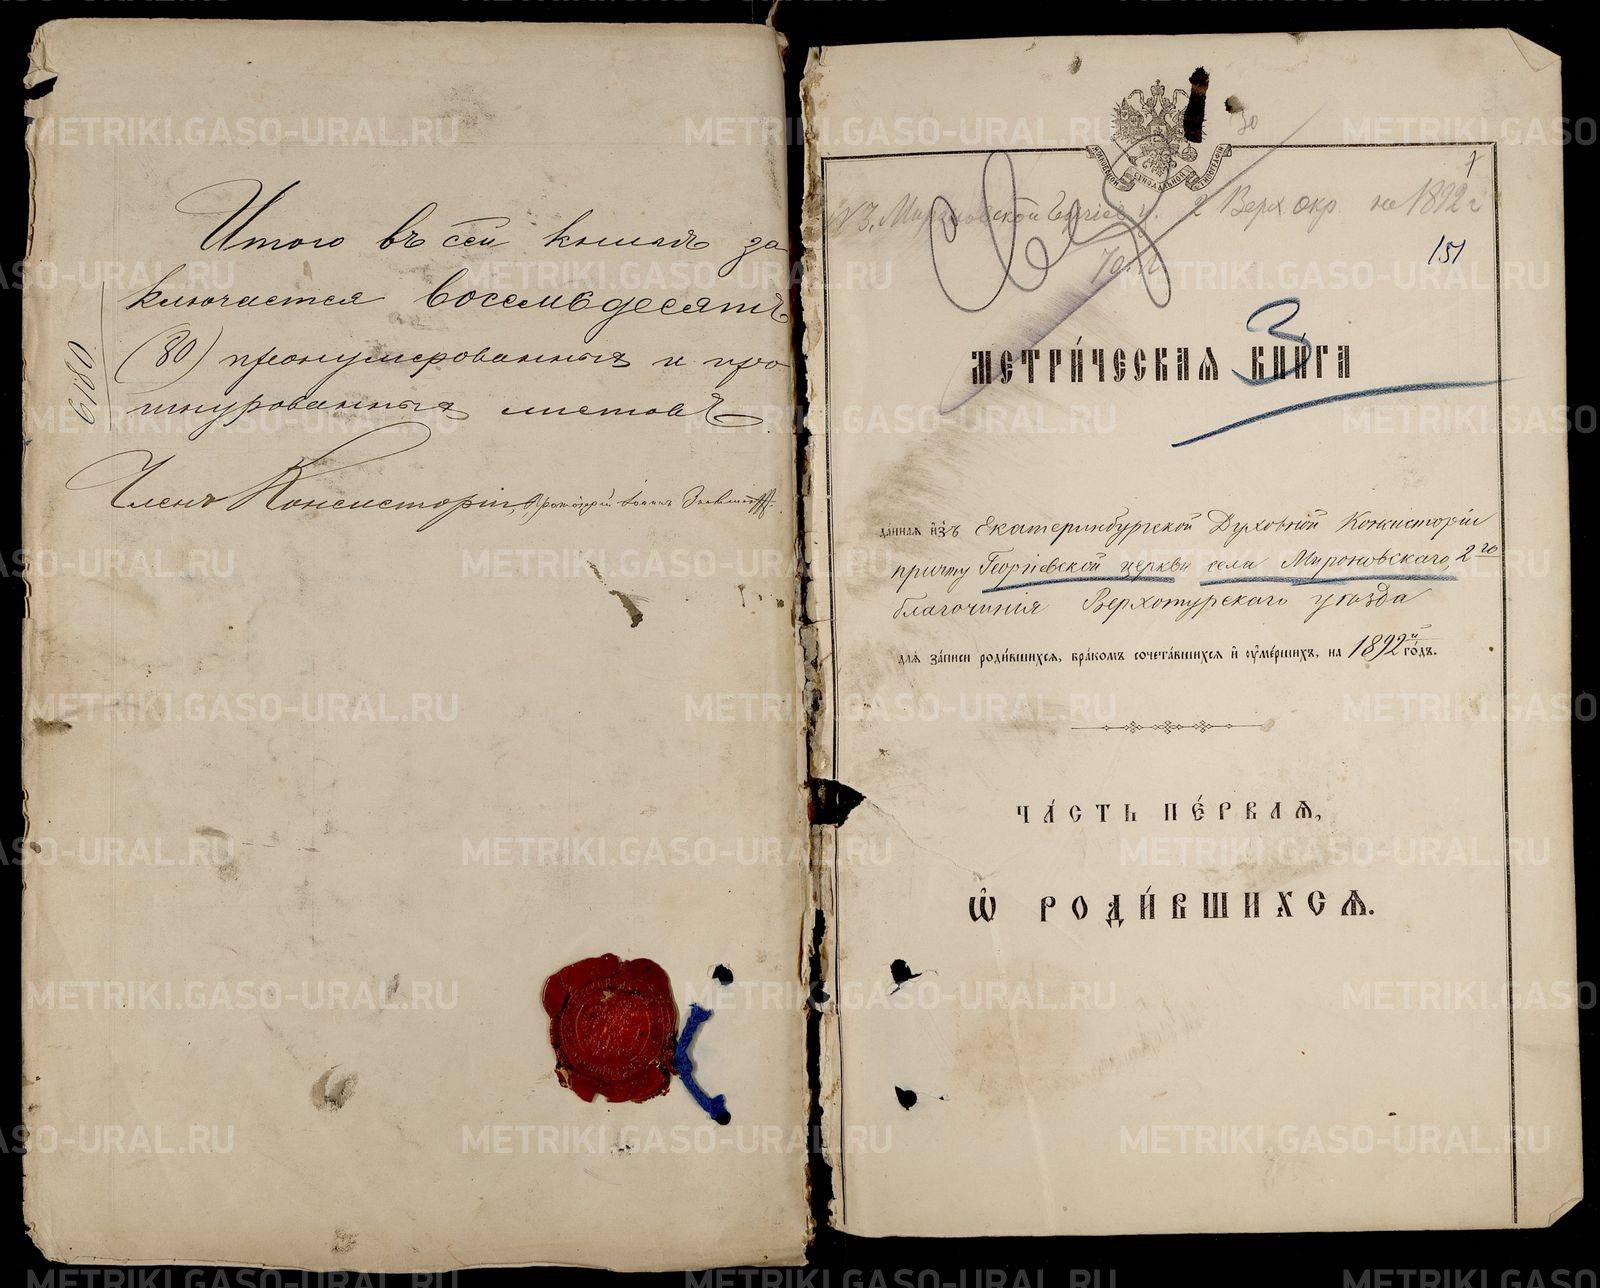 Итого въ сей книгѣ за
ключается восемьдесятъ
(80) пронумерованныхъ и про
шнурованныхъ листовъ
Членъ Консисторіи, Протоіерей Іоаннъ
6180
СѴНОДАЛЬНОЙ ТИПОГРАФІИ
30
1
2 Верх окр на 1892 г
151
3
МЕТРИ́ЧЕСКАѦ КНИ́ГА
даннаѧ и҆зъ Екатеринбургской Духовной Консисторіи
причту Георгіевской церкви села Мироновскаго, 2го
благочинія Верхотурскаго уѣзда
длѧ за́писи роди́вшихсѧ, бра́комъ сочета́вшихсѧ и҆ ᲂу҆ме́ршихъ, на 1892й го́дъ.
ЧА́СТЬ ПЕ́РВАѦ,
Ѽ РОДИ́ВШИХСѦ.
METRIKI.GASO-URAL.RU